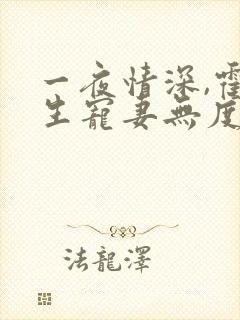 一夜情深,霍
生寵妻無度
法龍澤